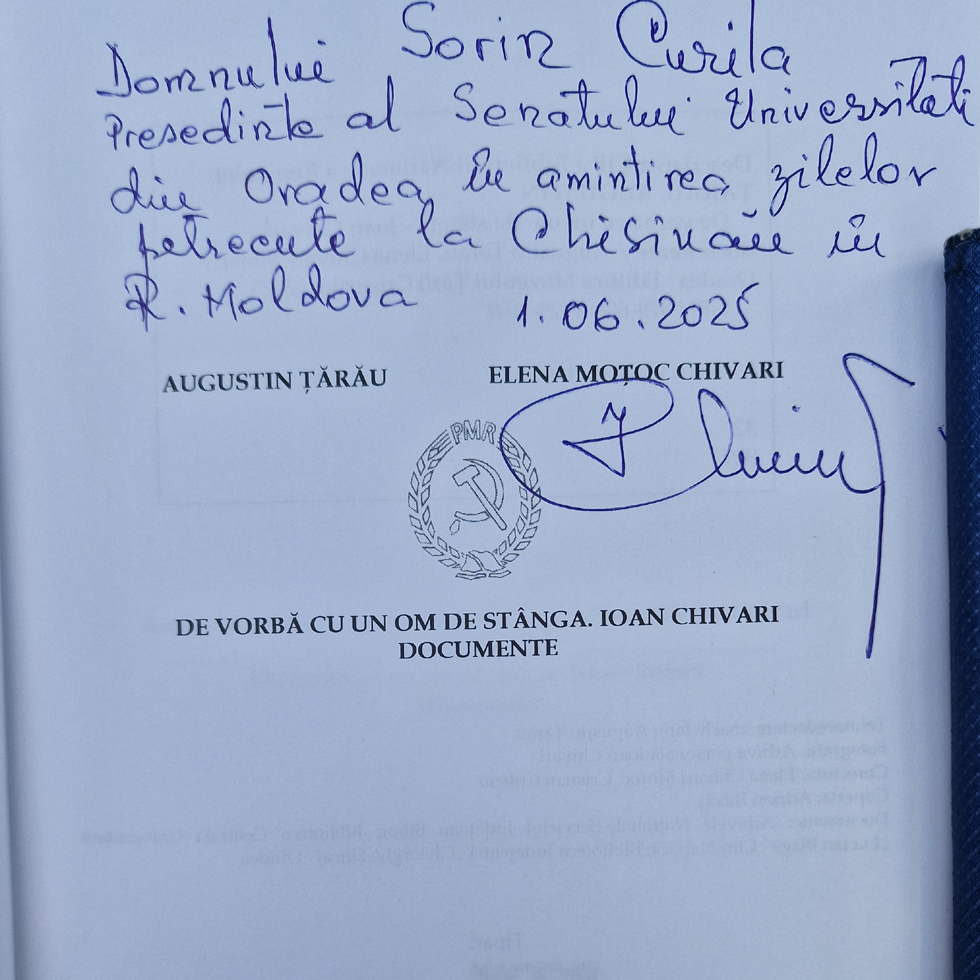 Domnului Sorin Curila
Presedinte al Senatului Universitati
din Oradea în amintirea zilelor
petrecute la Chisinău în
R. Moldova 1.06.2025
AUGUSTIN ȚĂRĂU ELENA MOȚOC CHIVARI
PMR
DE VORBĂ CU UN OM DE STÂNGA. IOAN CHIVARI
DOCUMENTE